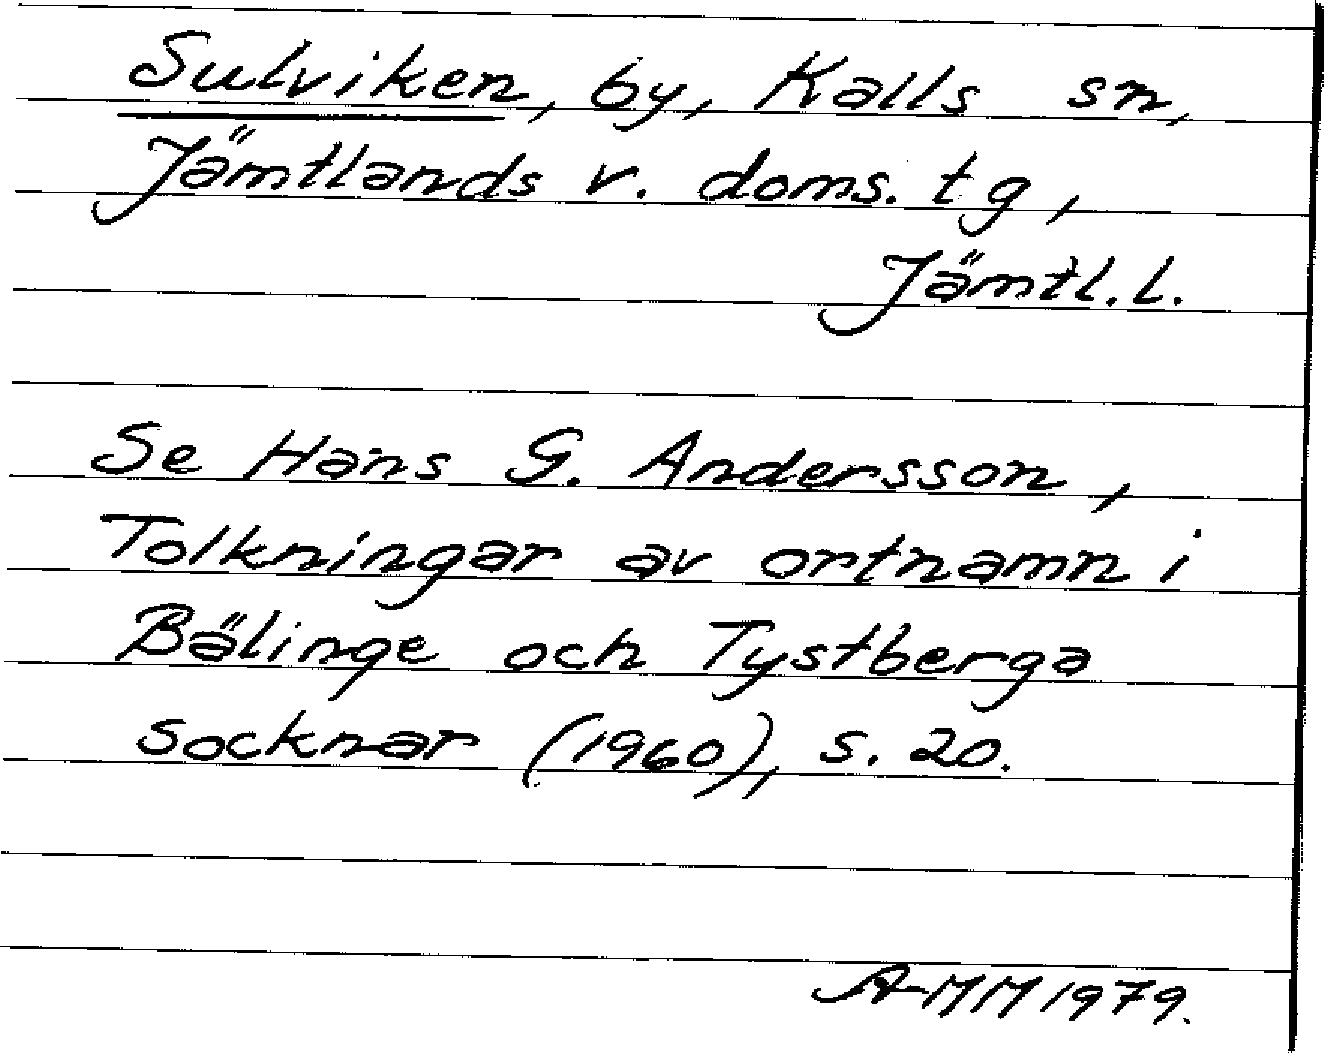 Sulviken, by, Kalls sn,
Jämtlands v. doms. tg,
Jämtl. l.
Se Hans G. Andersson,
Tolkningar av ortnamn i
Bälinge och Tystberga
socknar (1960), s. 20.
A-MM 1979.